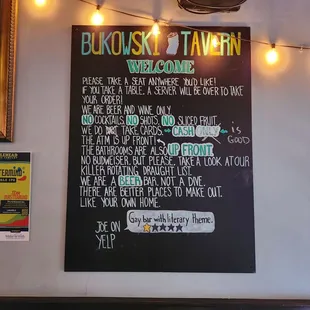 BUKOWSKI TAVERN
WELCOME
PLEASE TAKE A SEAT ANYWHERE YOU'D LIKE!
IF YOU TAKE A TABLE, A SERVER WILL BE OVER TO TAKE
YOUR ORDER!
WE ARE BEER AND WINE ONLY.
NO COCKTAILS. NO SHOTS. NO SLICED FRUIT.
WE DO NOT TAKE CARDS CASH ONLY IS
GOOD
THE ATM IS UP FRONT!
THE BATHROOMS ARE ALSO UP FRONT
NO BUDWEISER, BUT PLEASE, TAKE A LOOK AT OUR
KILLER ROTATING DRAUGHT LIST.
WE ARE A BEER BAR, NOT A DIVE.
THERE ARE BETTER PLACES TO MAKE OUT.
LIKE YOUR OWN HOME.
JOE ON
YELP
Gay bar with literary theme.